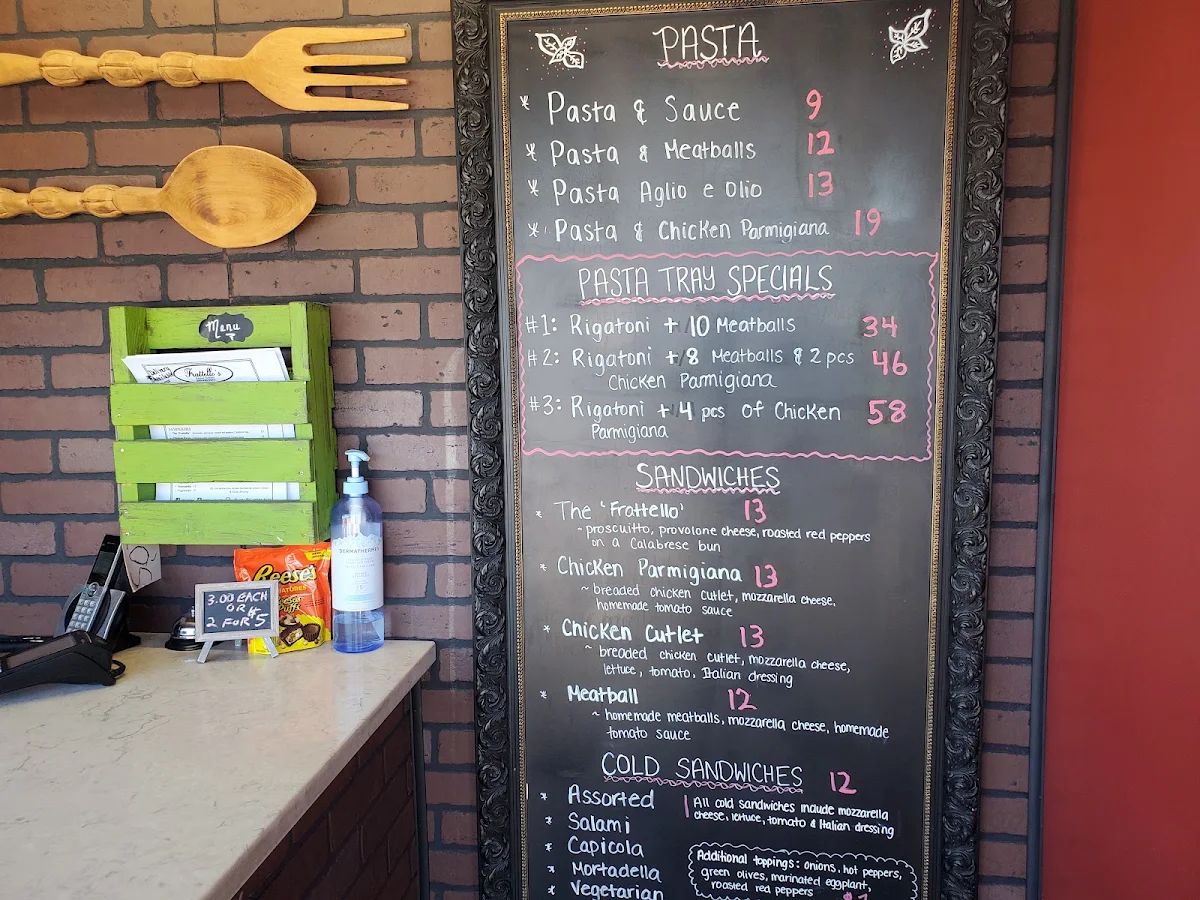 PASTA
* Pasta & Sauce 9
* Pasta & Meatballs 12
* Pasta Aglio e Olio 13
* Pasta & Chicken Parmigiana 19
PASTA TRAY SPECIALS
#1: Rigatoni + 10 Meatballs 34
#2: Rigatoni + 8 Meatballs & 2 pcs 46
Chicken Parmigiana
#3: Rigatoni + 4 pcs of Chicken 58
Parmigiana
SANDWICHES
* The 'Frattello' 13
~ proscuitto, provolone cheese, roasted red peppers
on a Calabrese bun
* Chicken Parmigiana 13
~ breaded chicken cutlet, mozzarella cheese,
homemade tomato sauce
* Chicken Cutlet 13
~ breaded chicken cutlet, mozzarella cheese,
lettuce, tomato, Italian dressing
* Meatball 12
~ homemade meatballs, mozzarella cheese, homemade
tomato sauce
COLD SANDWICHES 12
* Assorted
* Salami
* Capicola
* Mortadella
* Vegetarian
All cold sandwiches include mozzarella
cheese, lettuce, tomato & Italian dressing
Additional toppings: onions, hot peppers,
green olives, marinated eggplant,
roasted red peppers
Menu
Frattello's
Reese's
Puffs
3.00 EACH
OR
2 FOR $5
DERMATHERMES